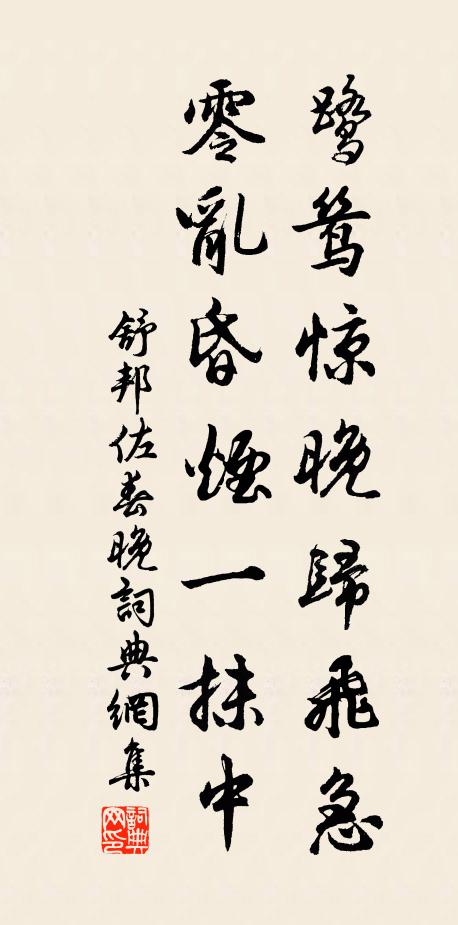 鷺鴛惊晚歸飛急
零亂昏煙一抹中
舒邦佐春晚詞典網集
詞典网印